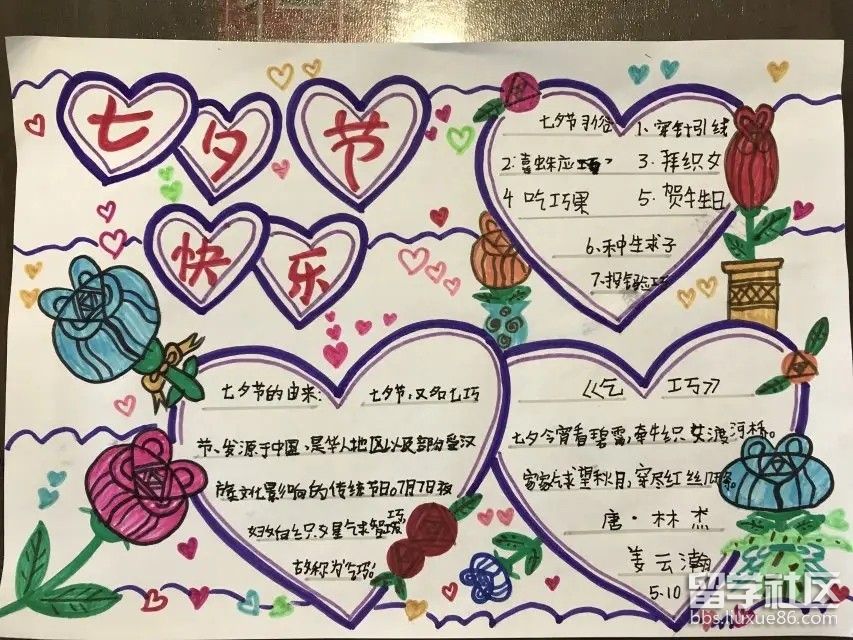 七夕节
快乐
七夕节习俗 1、穿针引线
2:喜蛛应巧 3、拜织女
4 吃巧果 5、贺牛生日
6、种生求子
7、投针验巧
七夕节的由来: 七夕节,又名七巧
节、发源于中国,是华人地区以及部分受汉
族文化影响的传统节日。7月7日夜
妇女向织女星乞求智巧
故称为乞巧。
《乞 巧》
七夕今宵看碧霄,牵牛织女渡河桥。
家家乞求望秋月,穿尽红丝几
唐·林杰
姜云瀚
5.10
留学社区
bbs.liuxue86.com